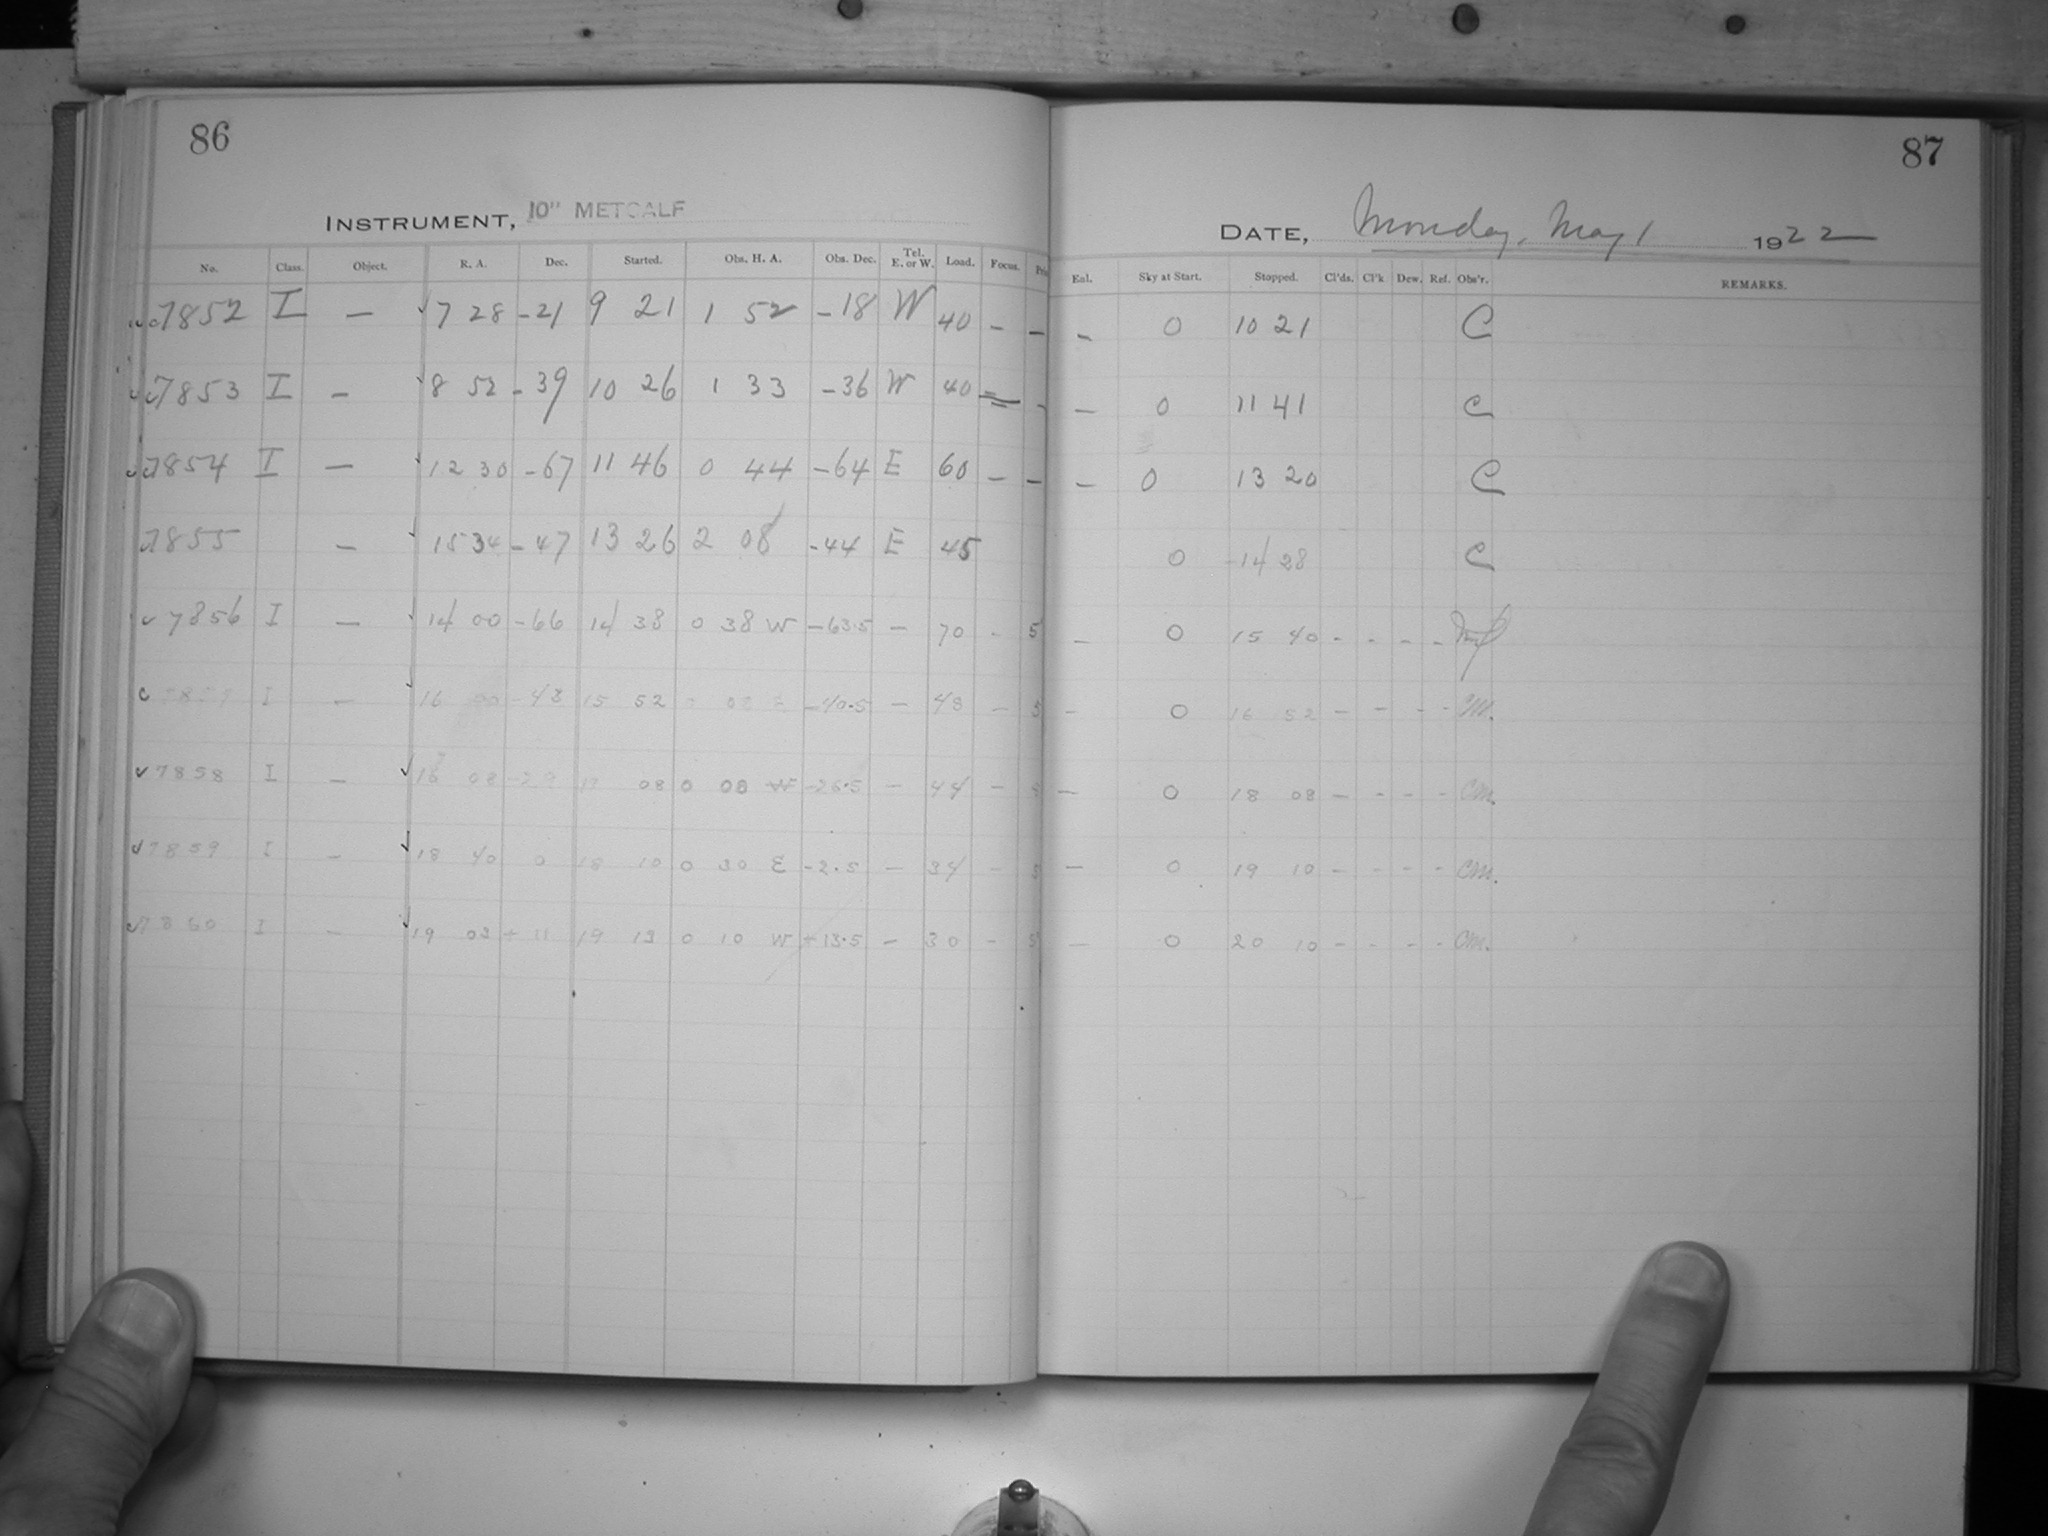 86
INSTRUMENT, 10" METCALF
No. Class. Object. R. A. Dec. Started. Obs. H. A. Obs. Dec. Tel. E. or W. Load. Focus.
7852 I — 7 28 -21 9 21 1 52 -18 W 40 - -
7853 I — 8 52 -39 10 26 1 33 -36 W 40 - -
7854 I — 12 30 -67 11 46 0 44 -64 E 60 - -
7855 — 15 34 -47 13 26 2 08 -44 E 45
7856 I — 14 00 -66 14 38 0 38 W -63.5 - 70 - 5
I — 16 00 -43 15 52 08 E -40.5 - 48 - 5
7858 I — 16 08 -29 08 0 08 W -26.5 - 44 - 5
7859 I — 18 40 0 18 10 0 30 E -2.5 - 34 - 5
7860 I — 19 03 + 11 19 13 0 10 W +13.5 - 30 - 5
87
DATE, Monday, May 1 1922
Enl. Sky at Start. Stopped. Cl'ds. Cl'k Dew. Ref. Obs'r. REMARKS.
- 0 10 21 C
- 0 11 41 C
- 0 13 20 C
0 14 28 C
- 0 15 40 - - - -
- 0 16 52 - - - - CM.
- 0 18 08 - - - - CM.
- 0 19 10 - - - - CM.
- 0 20 10 - - - - CM.